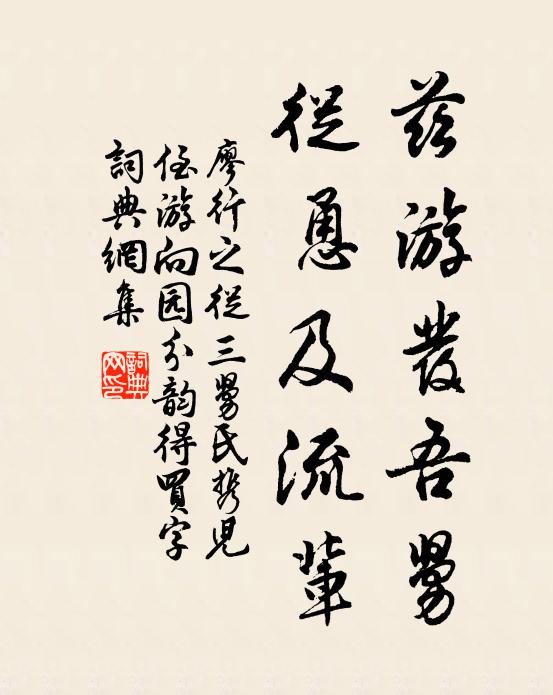 茲游發吾舅
從恿及流輩
廖行之從三舅氏携兒
侄游向园分韵得買字
詞典網集
詞典网印